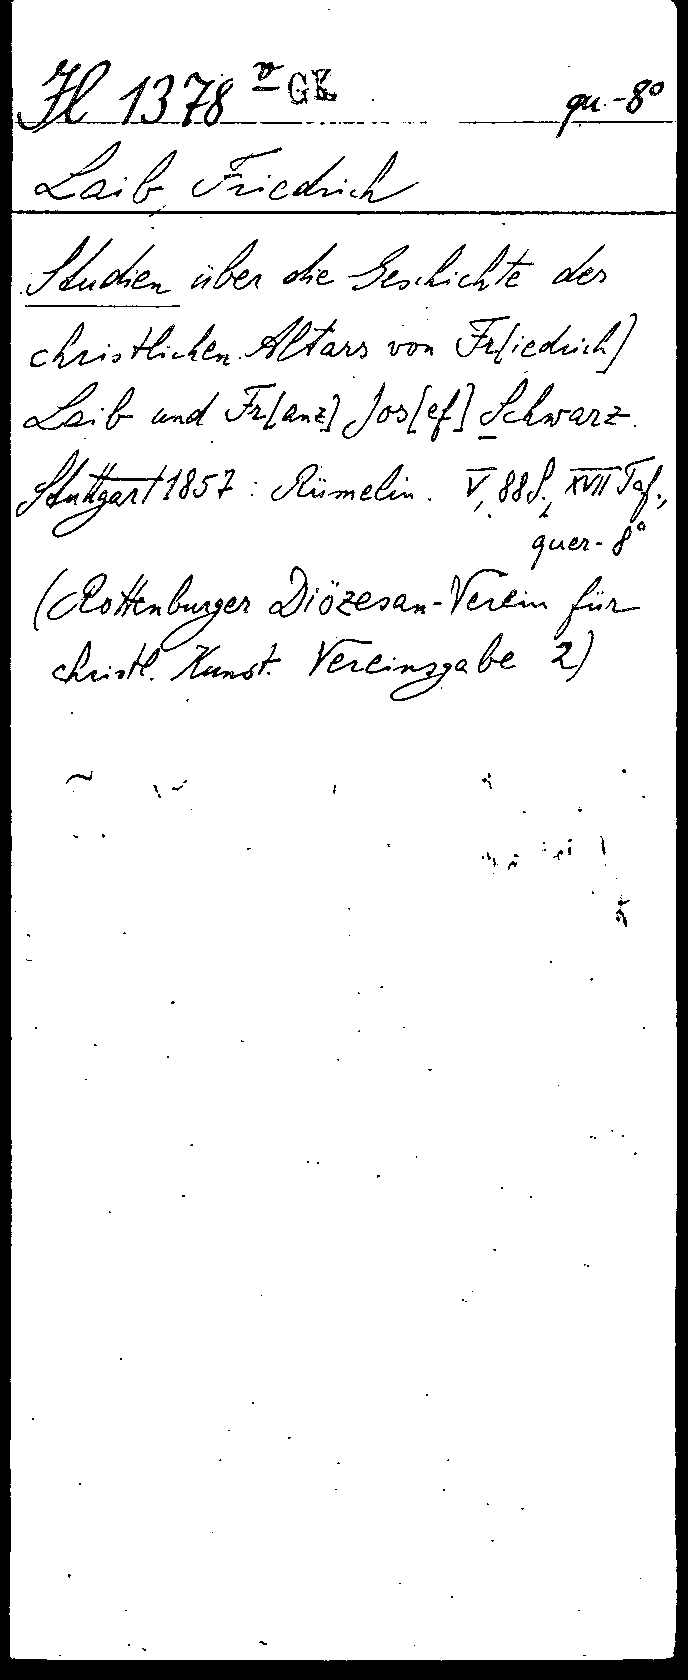 Jl 1378 v GK qu.-8°
Laib, Friedrich
Studien über die Geschichte der
christlichen Altars von Fr[iedrich]
Laib und Fr[anz] Jos[ef] Schwarz.
Stuttgart 1857: Rümelin. V, 88 S., XVII Taf.,
quer-8°
(Rottenburger Diözesan-Verein für
christl. Kunst. Vereinsgabe 2)